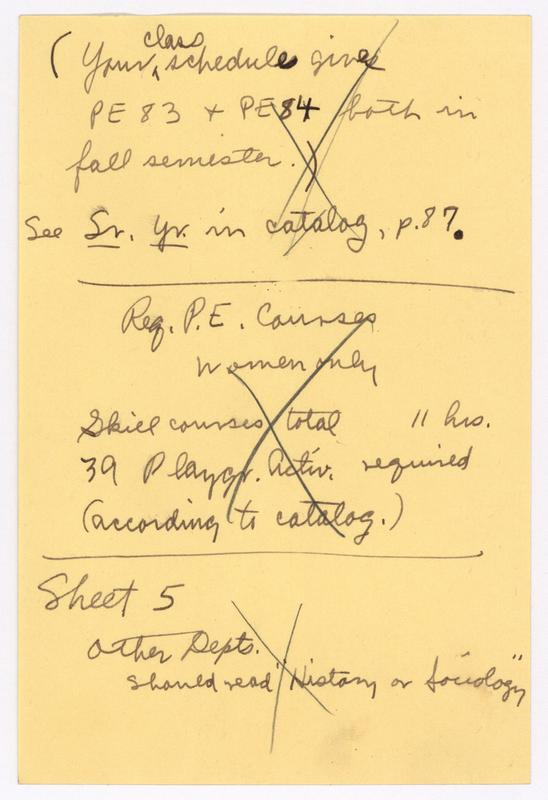 (Your class schedule gives
PE 83 + PE 84 both in
fall semester.)
See Sr. Yr. in catalog, p.87.
Req. P.E. Courses
Women only
Skill courses total 11 hrs.
39 Playgr. Activ. required
(according to catalog.)
Sheet 5
Other Depts.
should read "History or Sociology"